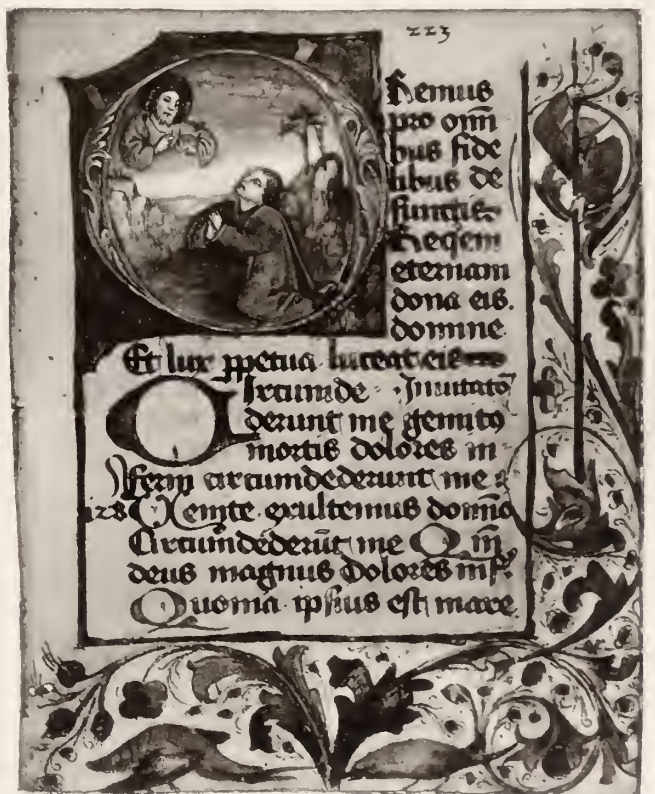 223
Remus
pro om̄
bus fide
libus de
functis
Reqem
eternam
dona eis.
domine
Et lux ꝑpetua luceat eis
Ircumde · Inuitato
derunt me gemito
mortis dolores in
ferni circumdederunt me
128 Uenite exultemus domīo
Circūdederūt me Q m̄
deus magnus Dolores inf.
Quonia ipsius est mare